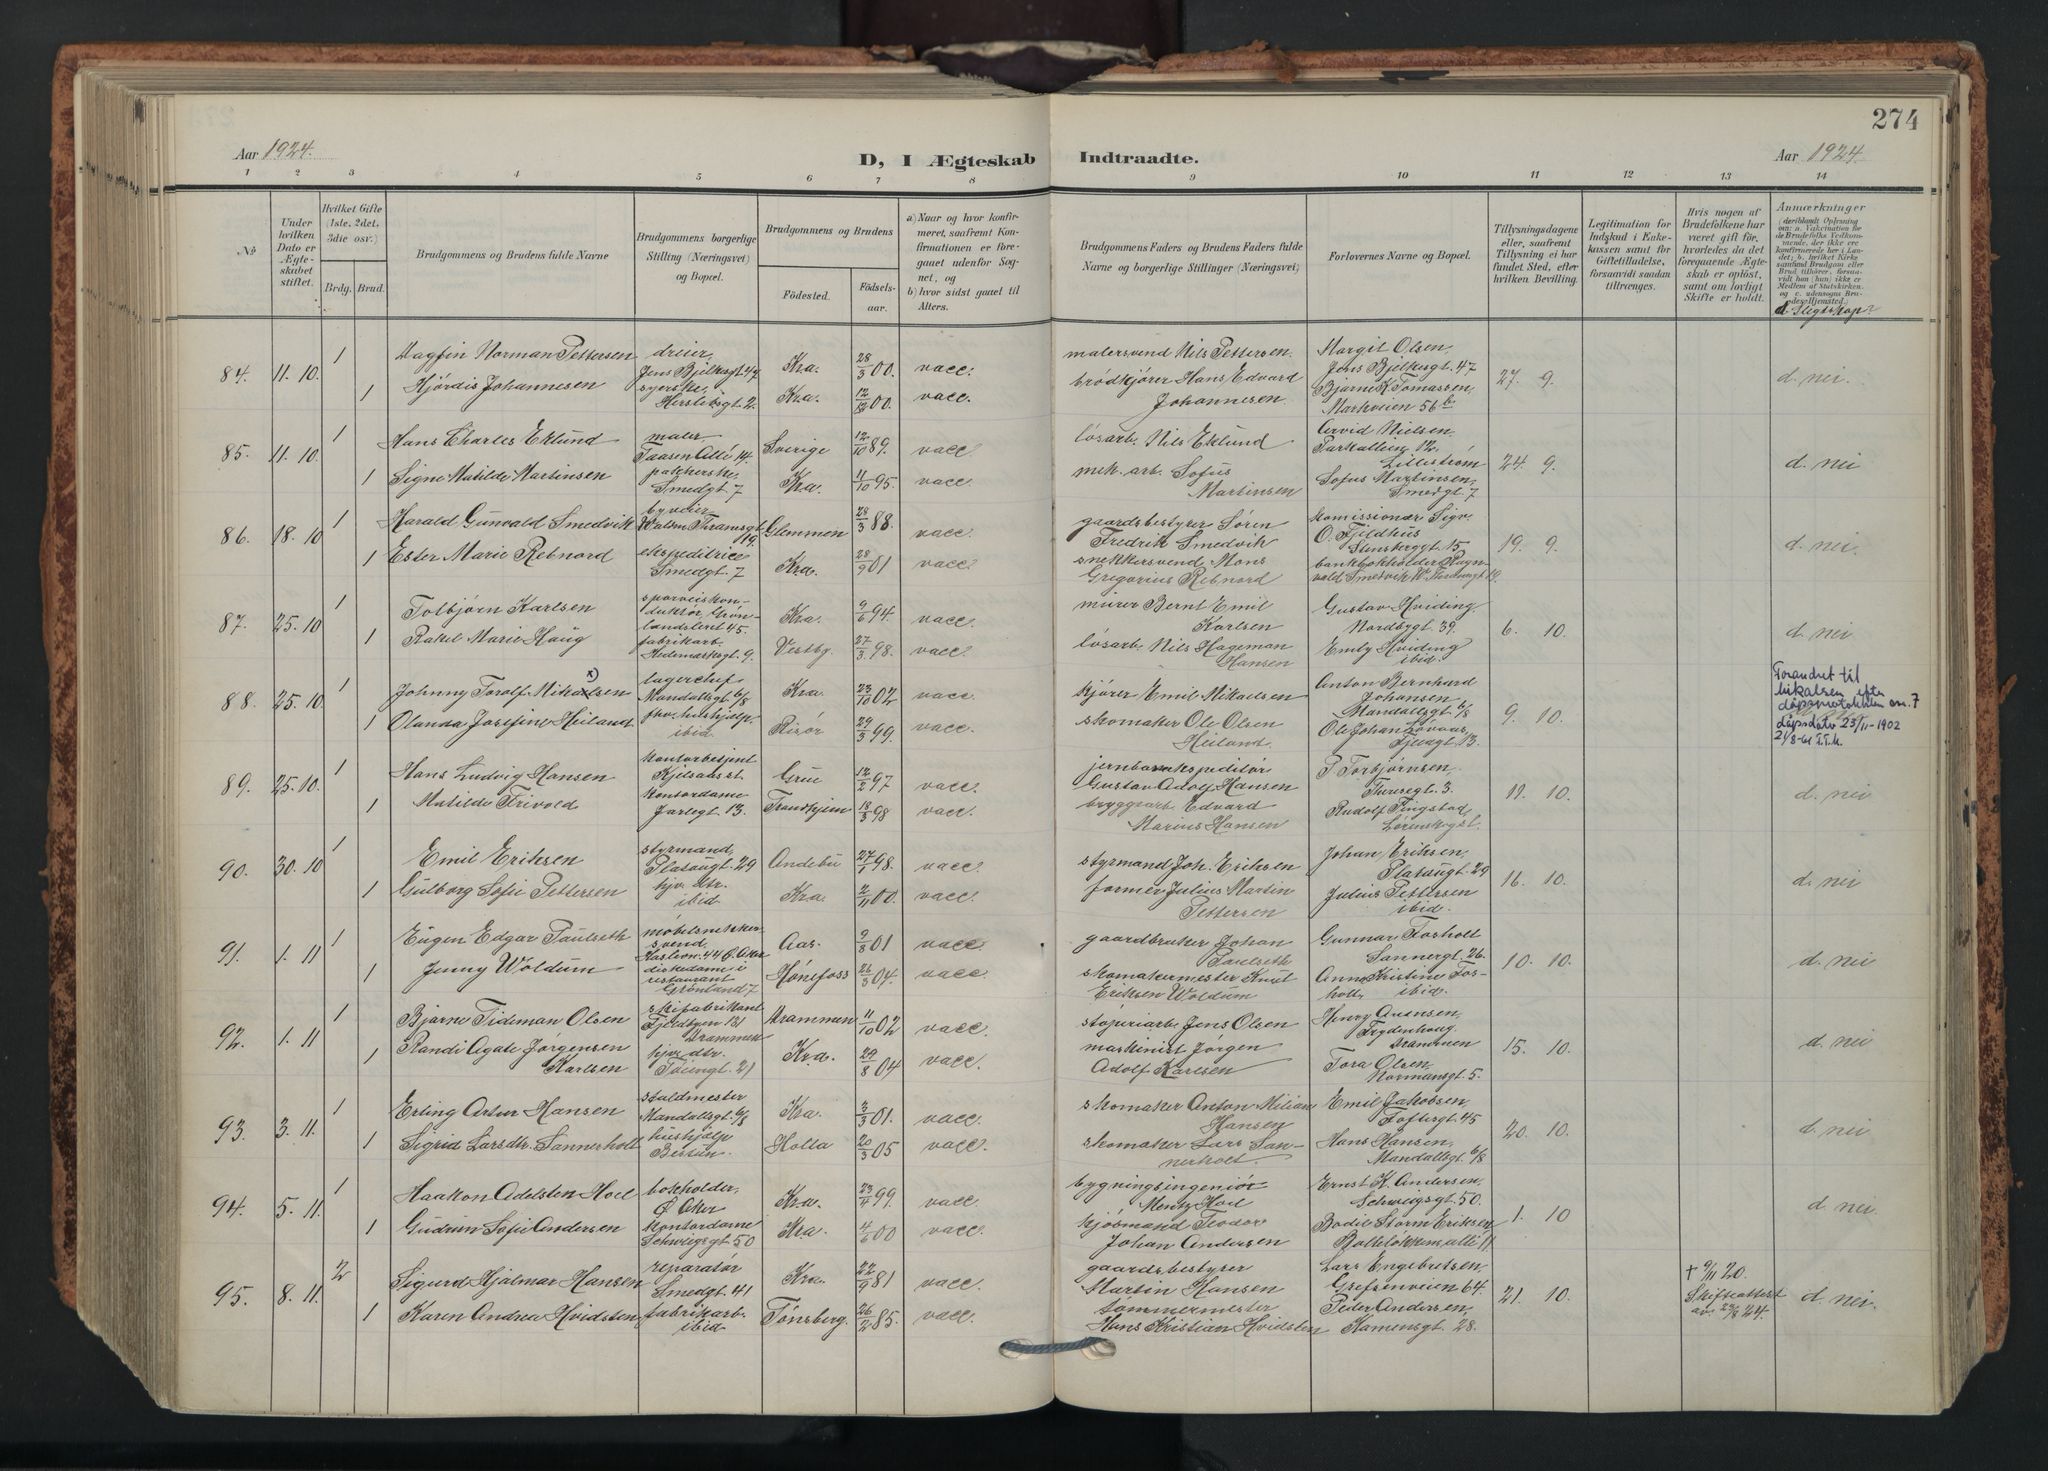 274
Aar 1924.
D, I Ægteskab Indtraadte.
Aar 1924.
1 2 3 4 5 6 7 8 9 10 11 12 13 14
No
Under hvilken Dato er Ægteskabet stiftet.
Hvilket Gifte (1ste, 2det, 3die osv.)
Brdg. Brud.
Brudgommens og Brudens fulde Navne
Brudgommens borgerlige Stilling (Næringsvei) og Bopæl.
Brudgommens og Brudens
Fødested.
Fødselsaar.
a) Naar og hvor konfirmeret, saafremt Konfirmationen er foregaaet udenfor Sognet, og
b) hvor sidst gaaet til Alters.
Brudgommens Faders og Brudens Faders fulde Navne og borgerlige Stillinger (Næringsvei)
Forlovernes Navne og Bopæl.
Tillysningsdagene eller, saafremt Tillysning ei har fundet Sted, efter hvilken Bevilling.
Legitimation for Indskud i Enkekassen samt for Giftetilladelse, forsaavidt saadan tiltrænges.
Hvis nogen af Brudefolkene har været gift før, hvorledes da det foregaaende Ægteskab er opløst, samt om lovligt Skifte er holdt.
Anmærkninger
d. Slegtskap?
84. 11. 10. 1 Dagfin Norman Pettersen dreier, Jens Bjelkesgt. 47 Kra. 28/3 00. vacc. malersvend Nils Pettersen. Margit Olsen, Jens Bjelkesgt. 47 27. 9. d. nei.
1 Hjørdis Johannesen syerske, Herslebsgt. 2. Kra. 12/12 00. vacc. brødkjører Hans Edvard Johannesen Bjarne K. Tomassen, Markveien 56b
85. 11. 10. 1 Hans Charles Eklund maler, Taasen Allé 14. Sverige 12/10 89. vacc. løsarb. Nils Eklund Arvid Nielsen, Parkalleen 12, Lillestrøm 24. 9. d. nei
1 Signe Matilde Martinsen pakkerske, Smedgt. 7 Kra. 11/10 95. vacc. mek. arb. Sofus Martinsen Sofus Martinsen, Smedgt. 7
86. 18. 10 1 Harald Gunvald Smedvik Glemmen 28/3 88. vacc. gaardsbestyrer Søren Fredrik Smedvik O. Fjeldhus Stensberggt. 15 19. 9. d. nei.
1 Ester Marie Rebnord ekspeditrice Smedgt. 7 Kra. 28/9 01 vacc. snekkersvend Mons Gregorius Rebnord bankbokholder Ragnvald Smedvik
87. 25. 10 1 Tolbjørn Karlsen sporveiskonduktør, Grønlandsleret 45. Kra. 9/6 94. vacc. murer Bernt Emil Karlsen Gustav Hviding Nordbygt. 39. 6. 10. d. nei
1 Rakel Marie Haug fabrikarb. Hedemarksgt. 9. Vestby. 27/3 98. vacc. løsarb. Nils Hageman Hansen Emily Hviding ibid.
88. 25. 10 1 Johnny Toralf Mikaelsen x) lagerchef Mandallsgt. 6/8 Kra. 23/10 02 vacc. kjører Emil Mikaelsen Anton Bernhard Johansen Mandallsgt. 6/8 9. 10.
1 Olanda Josefine Heiland ibid. Risør 29/3 99. vacc. skomaker Ole Olsen Heiland Ole Johan
Forandret til Mikalsen efter dåpsprotokollen nr. 7 dåpsdato 23/11-1902
89. 25. 10. 1 Hans Ludvig Hansen kontorbetjent Kjelsaas st Grue 12/2 97 vacc. jernbaneekspeditør Gustav Adolf Hansen P. Torbjørnsen, Theresegt. 3. 12. 10. d. nei
1 Matilde Frivold kontordame Jarlegt. 13. Trondhjem 18/3 98 vacc. bryggearb. Edvard Marius Hansen Rudolf Tingstad
90. 30. 10 1 Emil Eriksen styrmand, Platougt. 29 Andebu 27/1 98. vacc. styrmand Joh. Eriksen Johan Eriksen, Platougt. 29 16. 10. d. nei
1 Gulborg Sofie Pettersen hjv. dtr. ibid Kra. 2/11 00. vacc. former Julius Martin Pettersen Julius Pettersen ibid.
91. 1. 11 1 Eugen Edgar Paulseth møbelsnekkersvend, Aas. 9/8 01 vacc. gaardbruker Johan Paulseth Gunnar Fosholt Sannergt. 26. 10. 10. d. nei
1 Jenny Woldum diskedame i restaurant Grønland 7 Hønefoss 26/3 04. vacc. skomakermester Knut Eriksen Woldum Anna Kristine Fosholt, ibid.
92. 1. 11 1 Bjarne Tideman Olsen skifabrikant Fjeldbyen 131 Drammen Drammen 11/10 02 vacc. støperiarb. Jens Olsen Henry Evensen, Frydenhaug Drammen 15. 10. d. nei
1 Randi Agate Jørgensen Karlsen hjv. dtr. Tøiengt. 21 Kra. 29/8 04 vacc. maskinist Jørgen Adolf Karlsen Tora Olsen, Normansgt. 5.
93. 3. 11. 1 Erling Artur Hansen staldmester Mandallsgt. 6/8 Kra. 3/3 01. vacc. skomaker Anton Milian Hansen Emil Jakobsen Toftesgt. 45 20. 10. d. nei
1 Sigrid Larsdtr. Sannerholt hushjælp Bestun. Holla 20/3 05 vacc. skomaker Lars Sannerholt. Hans Hansen, Mandallsgt. 6/8
94. 5. 11. 1 Haakon Adelsten Hoel bokholder, Ø. Aker Kra. 23/4 99. vacc. bygningsingeniør Mentz Hoel Ernst K. Andersen, Schweigsgt. 50. 1. 10 d. nei.
1 Gudrun Sofie Andersen kontordame Schweigsgt 50 Kra. 4/6 00 vacc. kjøbmand Teodor Johan Andersen Bodil Storm Eriksen
95. 8. 11. 2 Sigurd Hjalmar Hansen reparatør Smedgt. 41 Kra. 22/9 81 vacc. gaardsbestyrer Martin Hansen Lars Engebretsen, Grefsenveien 64. 21. 10. † 9/11 20. Skifteattest av 23/8 24. d. nei.
1 Karen Andrea Hvidsten fabrikarb. ibid Tønsberg. 26/2 85. vacc. tømmermester Hans Kristian Hvidsten Peder Andersen, Kamensgt. 28.